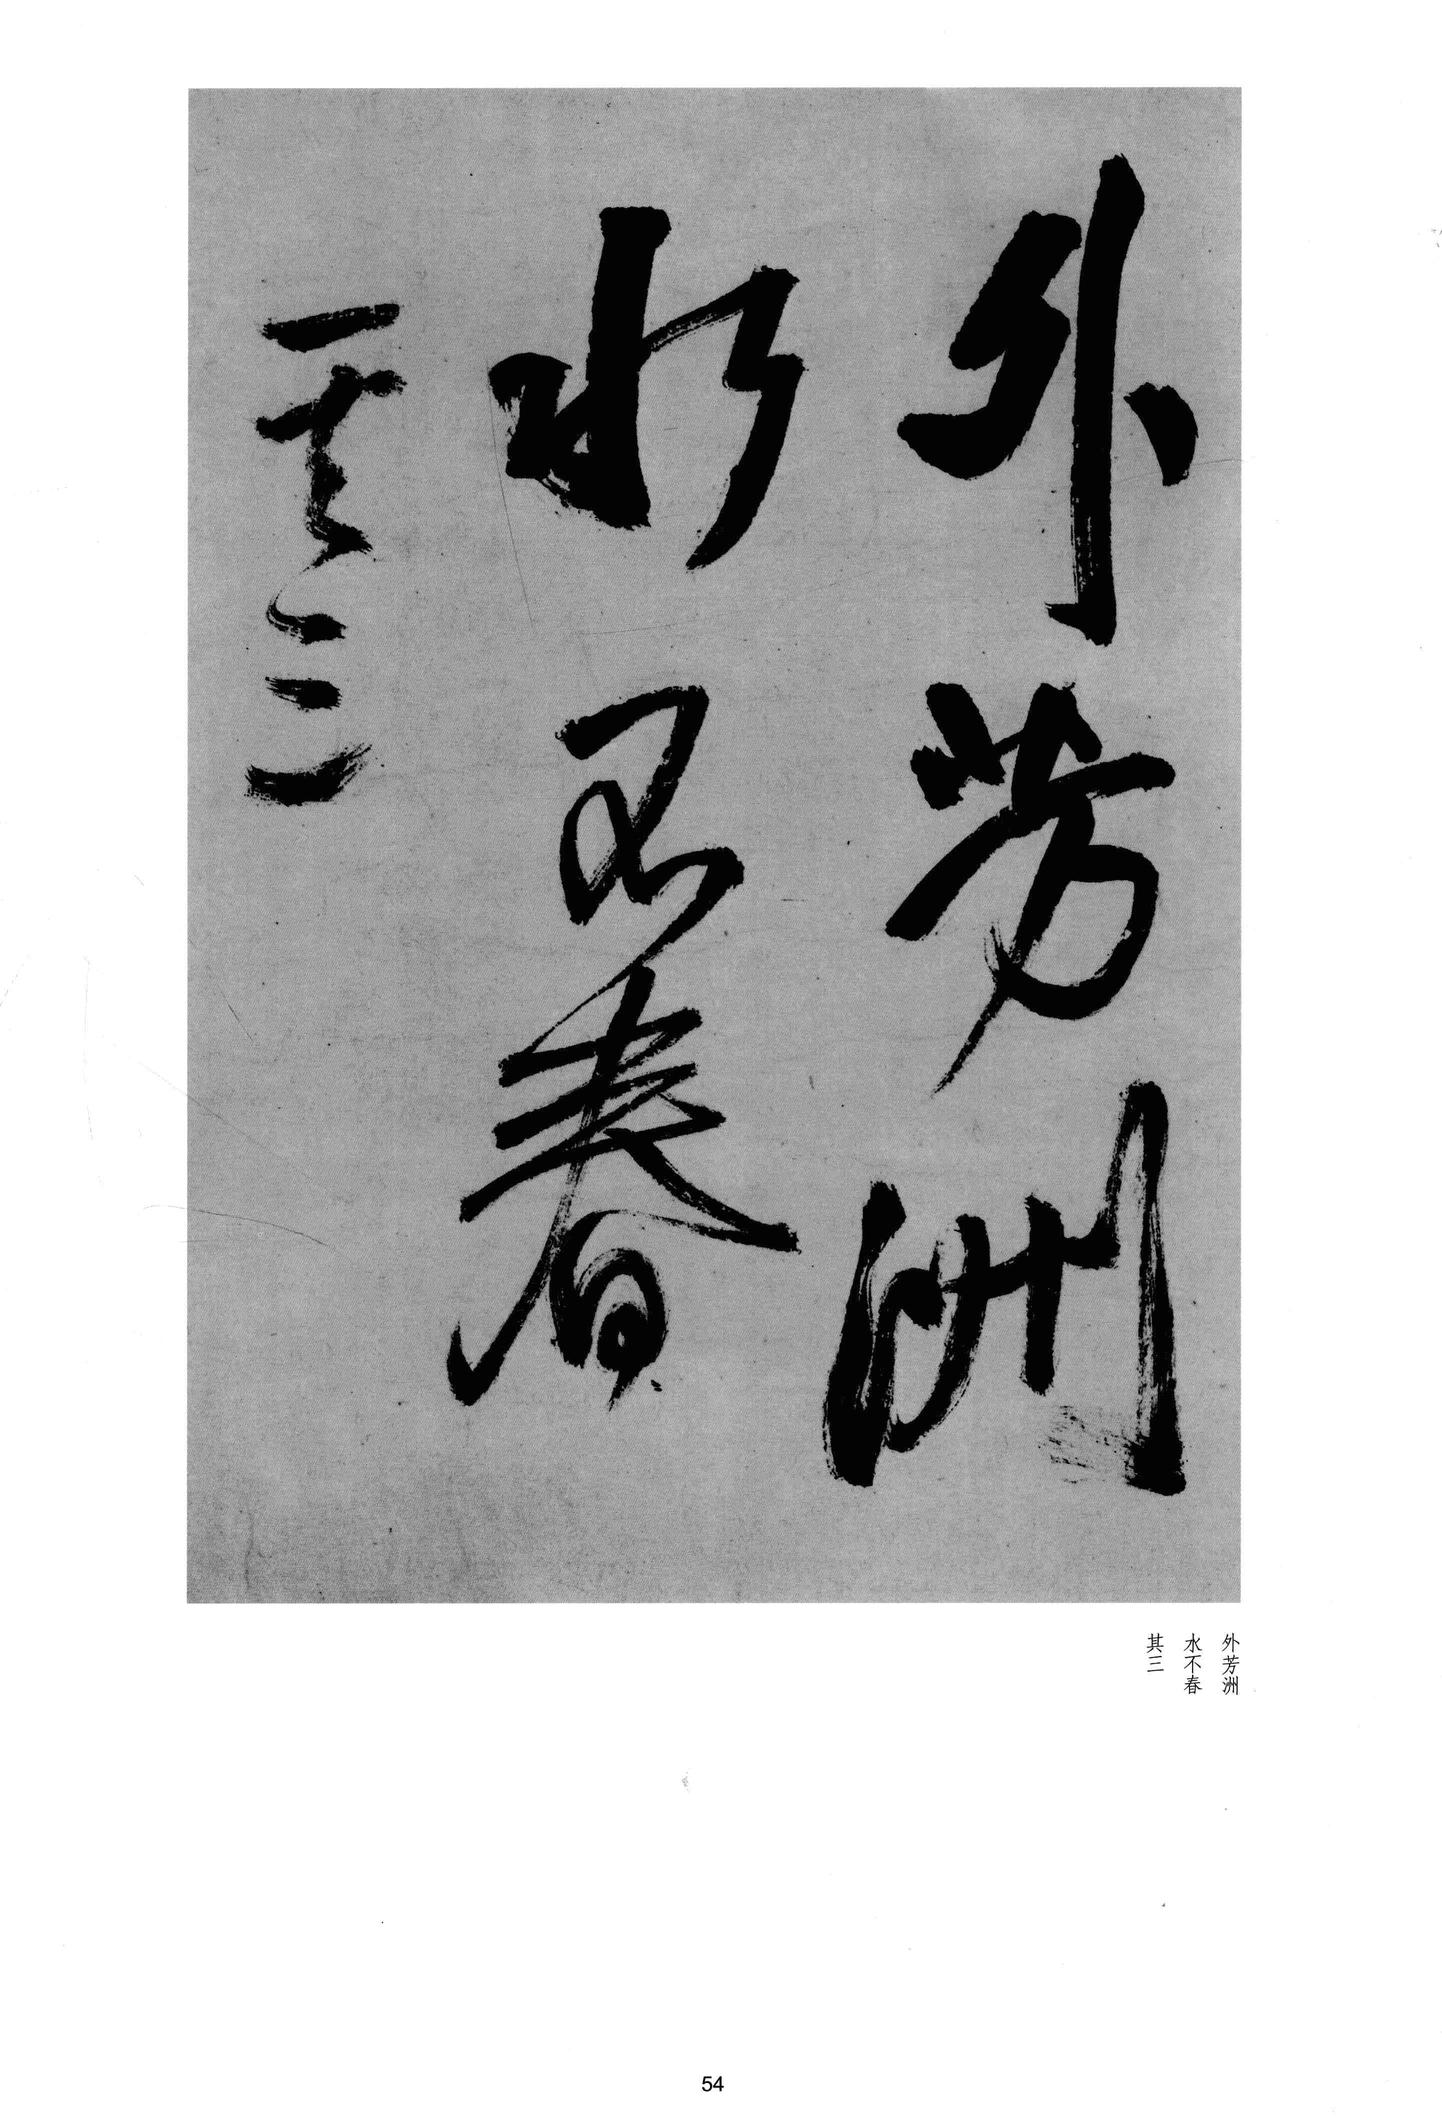 外芳洲
水不春
其三
外芳洲
水不春
其三
54